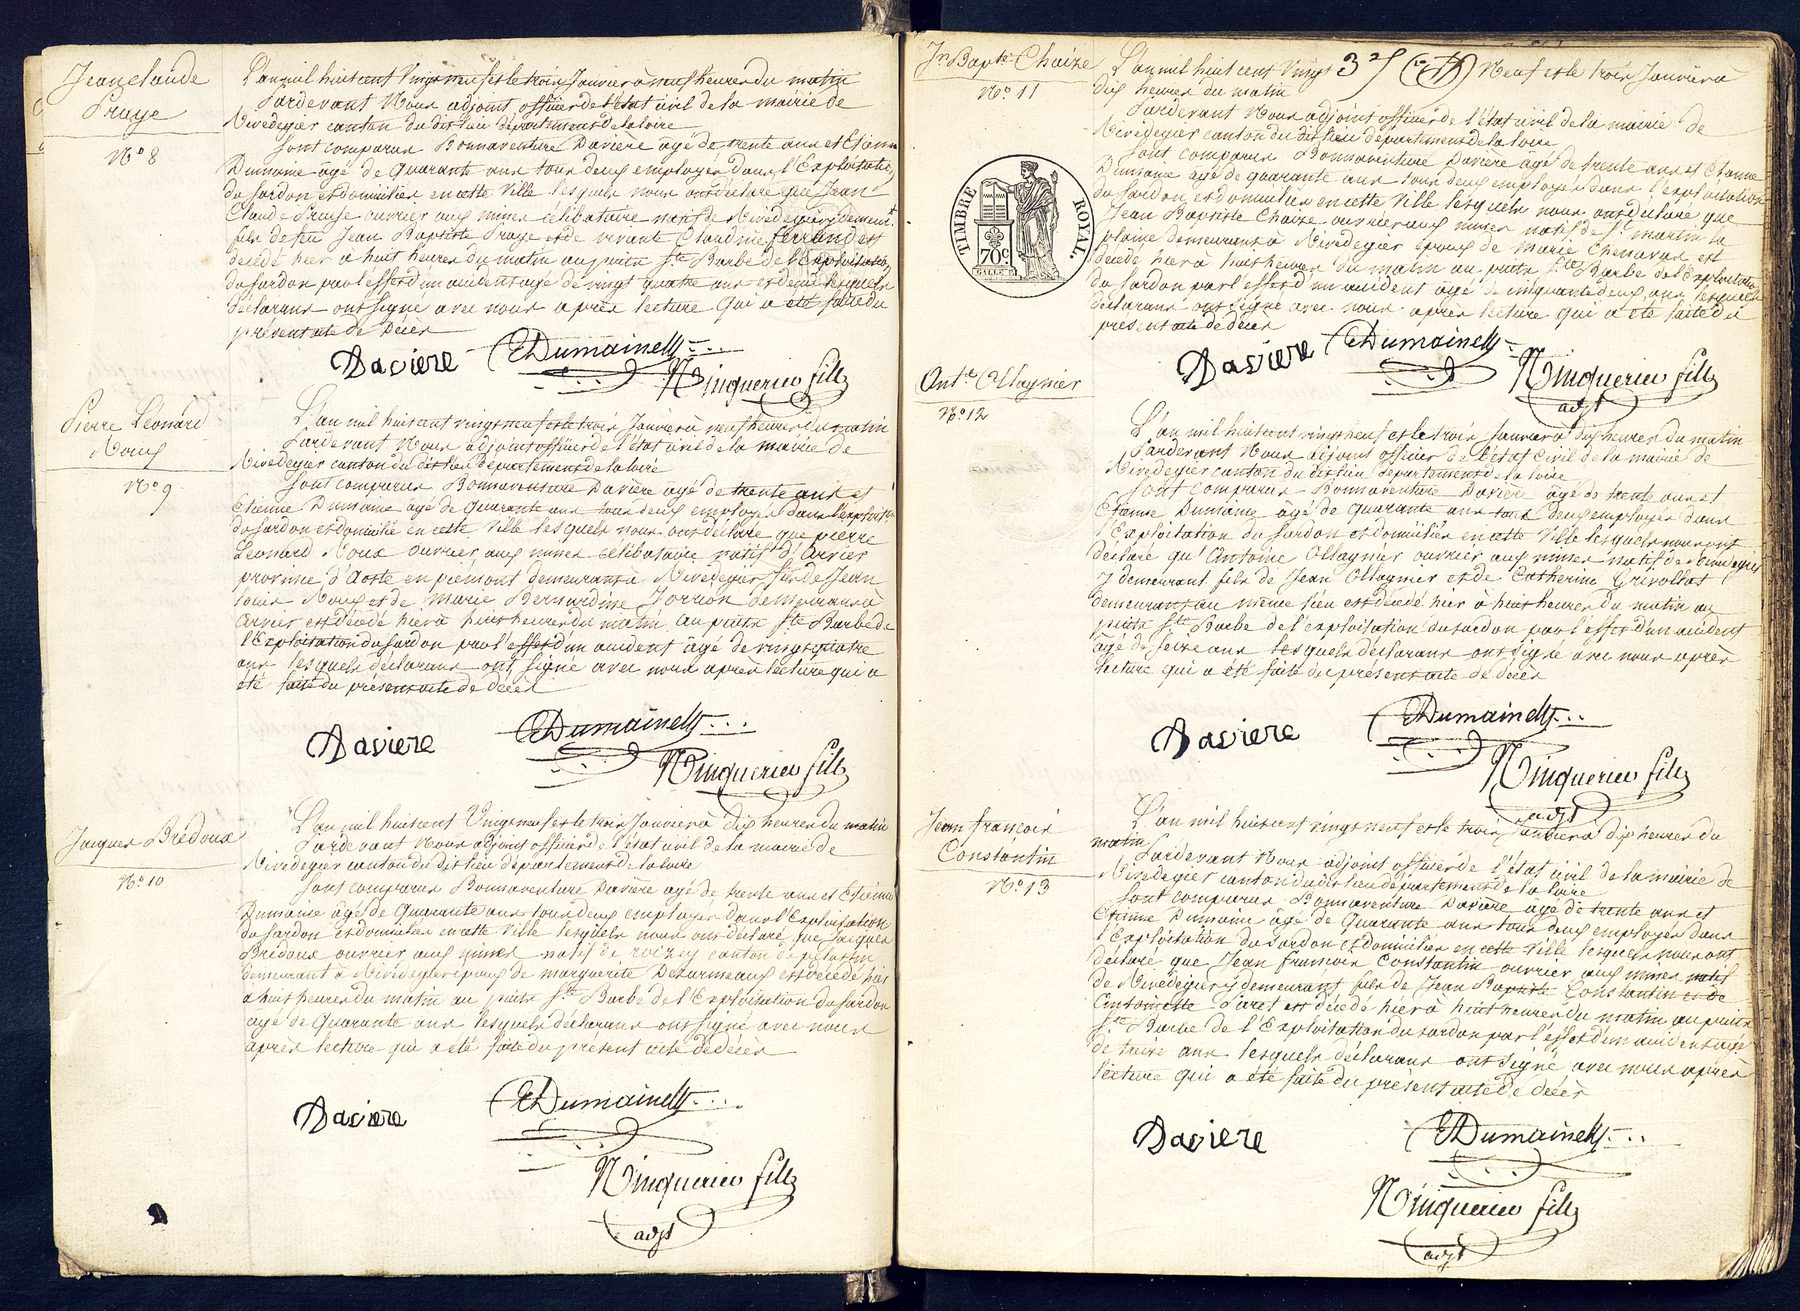 Jean claude
Praye
N° 8
L'an mil huit cent Vingt neuf et le trois Janvier à neuf heures du matin
Pardevant Nous adjoint officier de l'état civil de la mairie de
Rivedegier canton du dit lieu département de la loire
Sont comparus Bonnaventure Davière âgé de trente ans et Etienne
Dumaine âgé de quarante ans tous deux employés dans l'Exploitation
du Sardon et domiciliés en cette Ville lesquels nous ont déclaré que Jean
Claude Praye ouvrier aux mines célibataire natif de Rivedegier y demeurt
fils de feu Jean Baptiste Praye et de vivante Claudine ferrand est
décédé hier à huit heures du matin au puits Ste Barbe de l'Exploitation
du Sardon par l'effet d'un accident agé de vingt quatre ans et demi lesquels
déclarans ont signé avec nous après lecture qui a été faite du
présent acte de Décès
Daviere EDumaine
Vinquerieu fils
Pierre Léonard
Roux
N° 9
L'an mil huit cent vingt neuf et le trois Janvier à neuf heures du matin
Pardevant Nous adjoint officier de l'état civil de la mairie de
Rivedegier canton du dit lieu département de la loire
Sont comparus Bonnaventure Davière agé de trente ans et
Etienne Dumaine agé de Quarante ans tous deux employés dans l'exploiton
du Sardon et domicilié en cette Ville lesquels nous ont déclaré que pierre
Léonard Roux ouvrier aux mines célibataire natif d'Arvier
province d'Aoste en piémont demeurant à Rivedegier fils de Jean
louis Roux et de marie Bernardine Jorrion demeurans à
Arvier est décédé hier à huit heures du matin au puits Ste Barbe de
l'Exploitation du Sardon par l'effet d'un accident âgé de vingt quatre
ans lesquels déclarans ont signé avec nous après lecture qui a
été faite du présent acte de décès
Daviere EDumaine
Vinquerieu fils
Jacques Brédoux
N° 10
L'an mil huit cent Vingt neuf et le trois Janvier à dix heures du matin
Pardevant Nous adjoint officier de l'état civil de la mairie de
Rivedegier canton du dit lieu département de la loire
Sont comparus Bonnaventure Davière agé de trente ans et Etienne
Dumaine âgé de Quarante ans tous deux employés dans l'Exploitation
du Sardon et domiciliés en cette Ville lesquels nous ont déclaré que Jacques
Brédoux ouvrier aux mines natif de canton de pélussin
demeurant à Rivedegier époux de marguerite Desarmeaux est décédé hier
à huit heures du matin au puits Ste Barbe de l'Exploitation du Sardon
agé de Quarante ans lesquels déclarans ont signé avec nous
après lecture qui a été faite du présent acte de décès
Daviere EDumaine
Vinquerieu fils
adjt
Jn Bapte Chaize
N° 11
L'an mil huit cent Vingt 3e Neuf et le trois Janvier à
dix heures du matin
Pardevant Nous adjoint officier de l'état civil de la mairie de
Rivedegier canton du dit lieu département de la loire
Sont comparus Bonnaventure Davière âgé de trente ans et Etienne
Dumaine agé de quarante ans tous deux employés dans l'exploitation
du Sardon et domiciliés en cette Ville lesquels nous ont déclaré que
Jean Baptiste Chaize ouvrier aux mines natif de St martin la
plaine demeurant à Rivedegier époux de Marie Chenavas est
décédé hier à huit heures du matin au puits Ste Barbe de l'Exploitation
du Sardon par l'effet d'un accident âgé de cinquante deux ans lesquels
déclarans ont signé avec nous après lecture qui a été faite du
présent acte de décès
TIMBRE ROYAL
70c
Daviere EDumaine
Vinquerieu fils
adjt
Ante Ollagnier
N° 12
L'an mil huit cent vingt neuf et le trois Janvier à dix heures du matin
Pardevant Nous adjoint officier de l'état Civil de la mairie de
Rivedegier canton du dit lieu département de la loire
Sont comparus Bonnaventure Davière agé de trente ans et
Etienne Dumaine âgé de quarante ans tous deux employés dans
l'Exploitation du Sardon et domiciliés en cette Ville lesquels nous ont
déclaré qu'Antoine Ollagnier ouvrier aux mines natif de Rivedegier
y demeurant fils de Jean Ollagnier et de Catherine Grivollat
demeurant au même lieu est décédé hier à huit heures du matin au
puits Ste Barbe de l'exploitation du Sardon par l'effet d'un accident
âgé de seize ans lesquels déclarans ont signé avec nous après
lecture qui a été faite du présent acte de décès
Daviere EDumaine
Vinquerieu fils
adjt
Jean françois
Constantin
N° 13
L'an mil huit cent vingt neuf et le trois Janvier à dix heures du
matin Pardevant Nous adjoint officier de l'état civil de la mairie de
Rivedegier canton du dit lieu département de la loire
Sont comparus Bonnaventure Davière agé de trente ans et
Etienne Dumaine âgé de Quarante ans tous deux employés dans
l'Exploitation du Sardon et domiciliés en cette Ville lesquels nous ont
déclaré que Jean françois Constantin ouvrier aux mines natif
de Rivedegier y demeurant fils de Jean Baptiste Constantin et de
Antoinette est décédé hier à huit heures du matin au puits
Ste Barbe de l'Exploitation du Sardon par l'effet d'un accident agé
de treize ans lesquels déclarans ont signé avec nous après
lecture qui a été faite du présent acte de décès
Daviere EDumaine
Vinquerieu fils
adjt